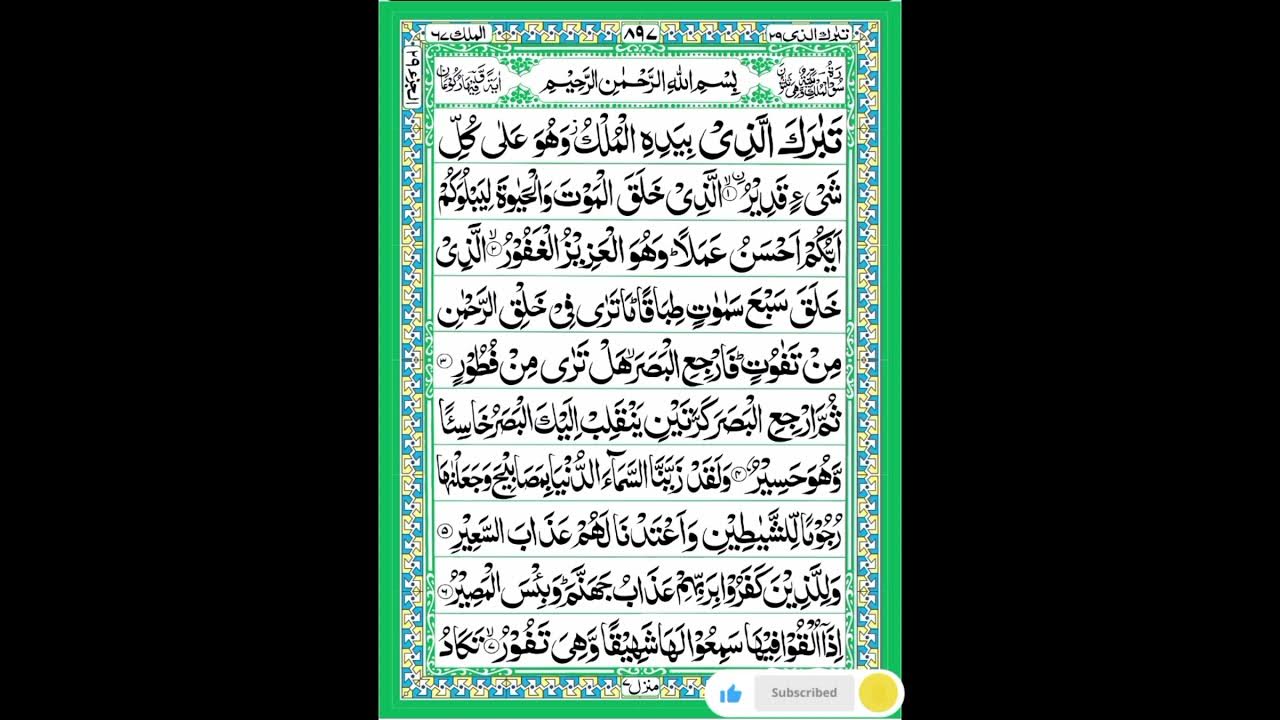 تبرك الذی ۲۹
۸۹۷
الملك ۶۷
الجزء ۲۹
بِسْمِ اللهِ الرَّحْمٰنِ الرَّحِيْمِ
تَبٰرَكَ الَّذِیْ بِيَدِهِ الْمُلْكُ ز وَهُوَ عَلٰی كُلِّ
شَیْءٍ قَدِيْرُ ۨ ۙ‏﴿۱﴾ الَّذِیْ خَلَقَ الْمَوْتَ وَالْحَيٰوةَ لِيَبْلُوَكُمْ
اَيُّكُمْ اَحْسَنُ عَمَلًا ؕ وَهُوَ الْعَزِيْزُ الْغَفُوْرُ ۙ﴿۲﴾ الَّذِیْ
خَلَقَ سَبْعَ سَمٰوٰتٍ طِبَاقًا ؕ مَا تَرٰی فِیْ خَلْقِ الرَّحْمٰنِ
مِنْ تَفٰوُتٍ ؕ فَارْجِعِ الْبَصَرَ ۙ هَلْ تَرٰی مِنْ فُطُوْرٍ ﴿۳﴾
ثُمَّ ارْجِعِ الْبَصَرَ كَرَّتَيْنِ يَنْقَلِبْ اِلَيْكَ الْبَصَرُ خَاسِئًا
وَّهُوَ حَسِيْرٌ ﴿۴﴾ وَلَقَدْ زَيَّنَّا السَّمَآءَ الدُّنْيَا بِمَصَابِيْحَ وَجَعَلْنٰهَا
رُجُوْمًا لِّلشَّيٰطِيْنِ وَاَعْتَدْنَا لَهُمْ عَذَابَ السَّعِيْرِ ﴿۵﴾
وَلِلَّذِيْنَ كَفَرُوْا بِرَبِّهِمْ عَذَابُ جَهَنَّمَ ؕ وَبِئْسَ الْمَصِيْرُ ﴿۶﴾
اِذَاۤ اُلْقُوْا فِيْهَا سَمِعُوْا لَهَا شَهِيْقًا وَّهِیَ تَفُوْرُ ۙ﴿۷﴾ تَكَادُ
منزل ۷
Subscribed